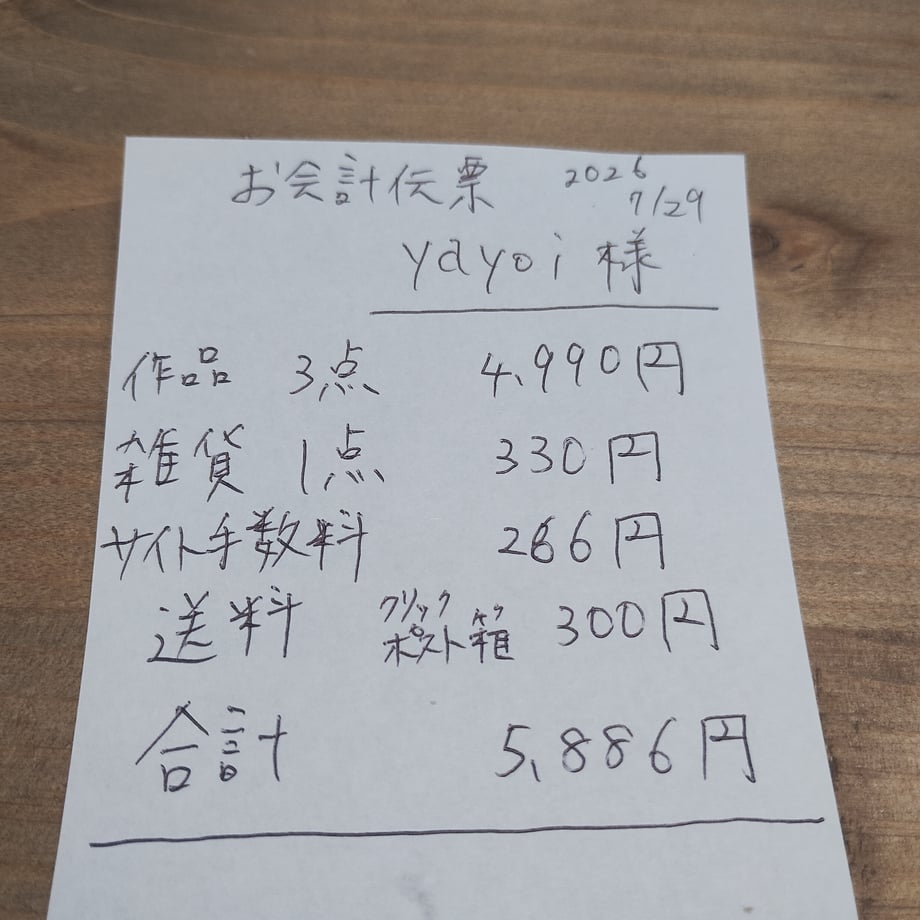 お会計伝票 2026
7/29
yayoi 様
作品 3点 4,990円
雑貨 1点 330円
サイト手数料 266円
送料 クリックポスト箱 300円
合計 5,886円